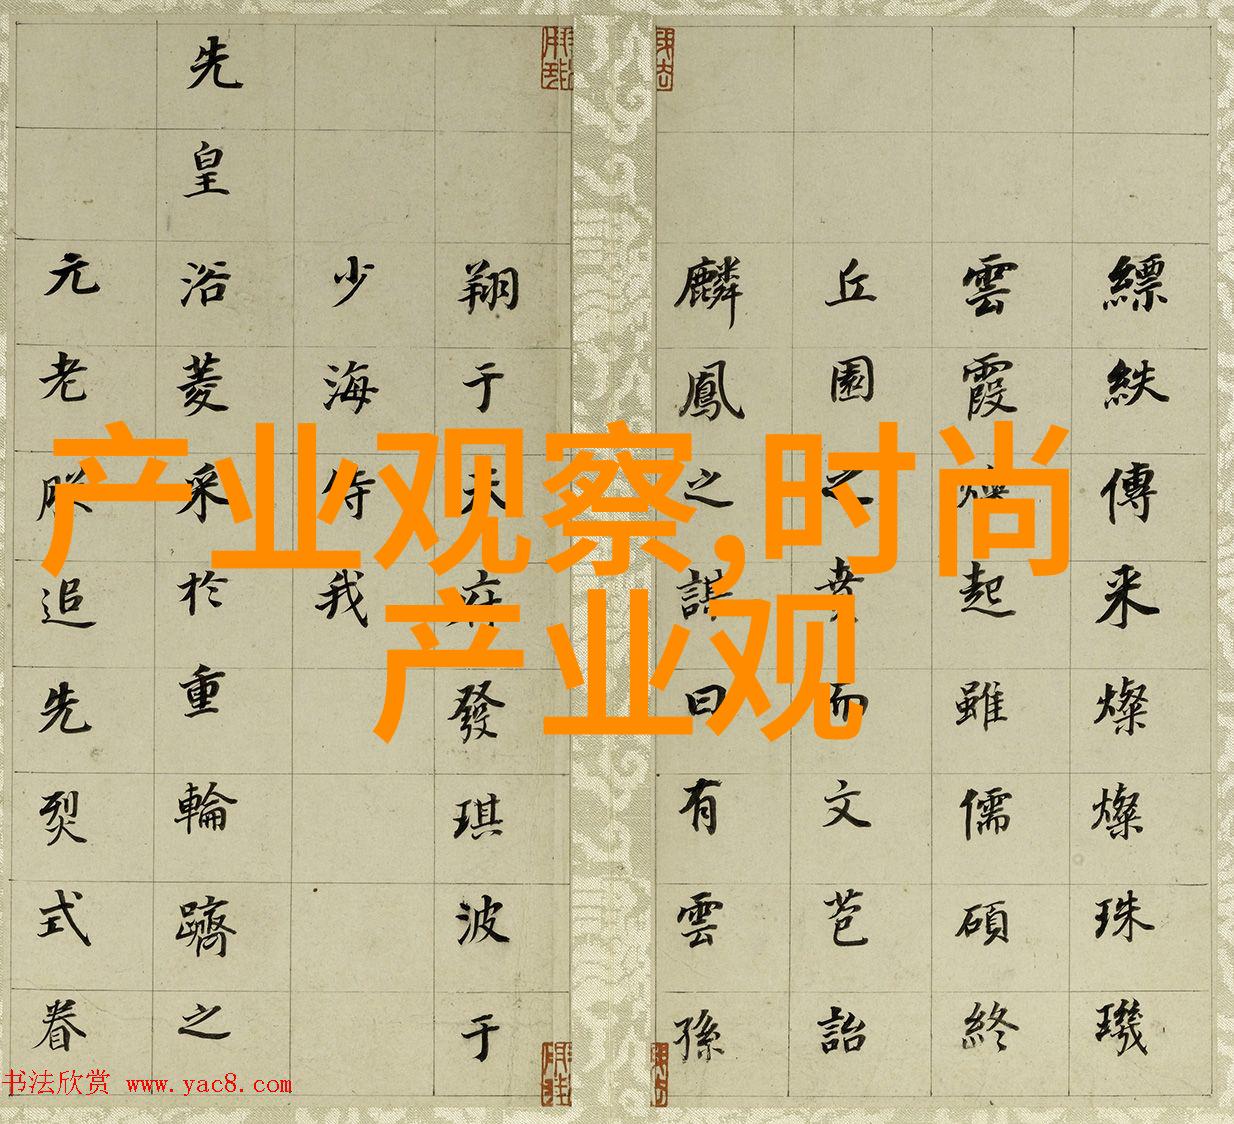 产业观察,时尚
产业观
縹紩傳来燦燦珠璣
雲霞起雖儒碩終
丘園之賁而文芑詒
麟鳳之謀曰有雲孫
翔于天府發琪波于
少海侍我
先皇浴菱采於重輪躋之
元老朕追先烈式眷
书法欣赏 www.yac8.com